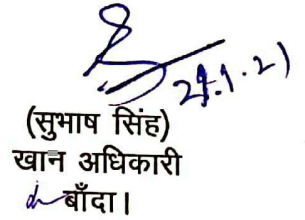 21.1.21
(सुभाष सिंह)
खान अधिकारी
बाँदा।